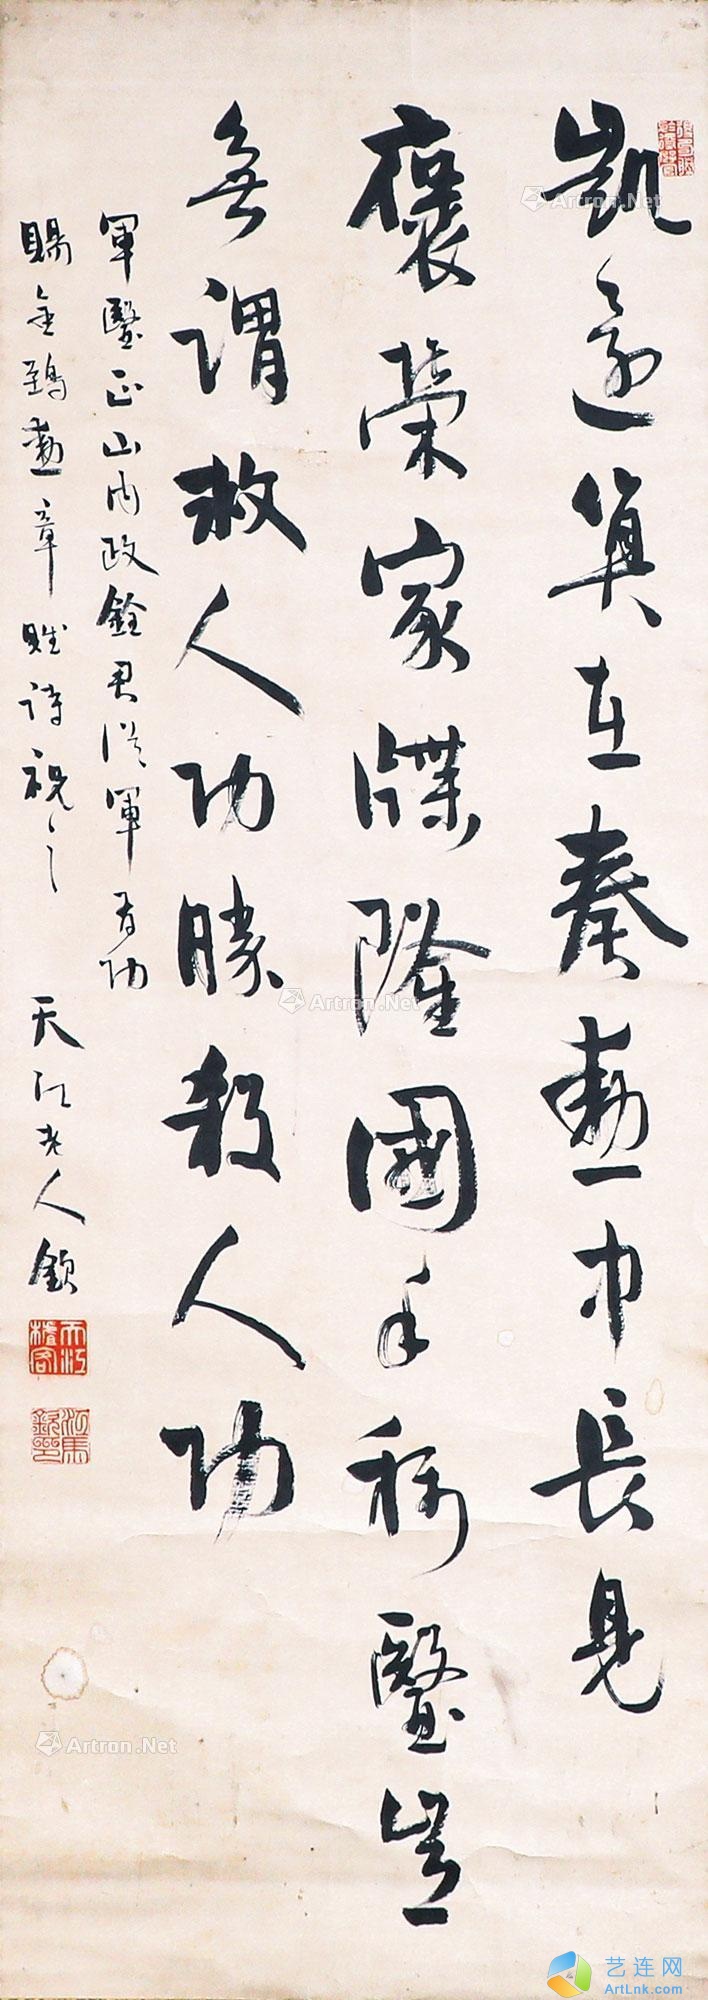 凱還算在奏勳中長見
褒榮家牒隆國手稱醫豈
無謂救人功勝殺人功
軍醫正山内政銓君從軍有功
賜金鵄勳章賦詩祝之 天江老人欽
Artron.Net
Artron.Net
Artron.Net
艺连网
ArtLnk.com